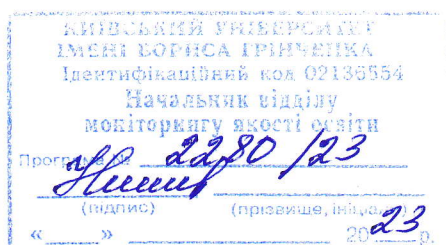 КИЇВСЬКИЙ УНІВЕРСИТЕТ
ІМЕНІ БОРИСА ГРІНЧЕНКА
Ідентифікаційний код 02136554
Начальник відділу
моніторингу якості освіти
Програма № 2280/23
(підпис) (прізвище, ініціали)
« » 2023р.